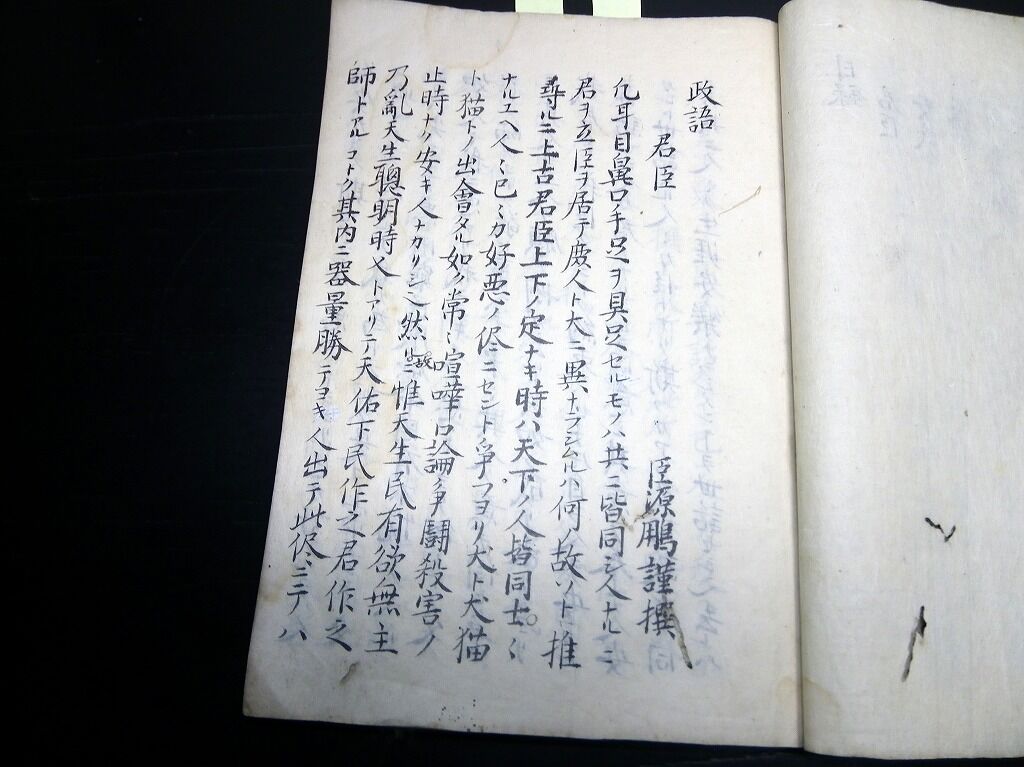 政語
君臣
臣源鵬謹撰
凡耳目鼻口手足ヲ具足セルモノハ共ニ皆同シ人ナルニ
君ヲ立臣ヲ居テ庶人ト大ニ異ナラシムルハ何ノ故ソト推
尋ルニ上古君臣上下ノ定ナキ時ハ天下ノ人皆同士〱
ナルユヘ人〻已〻カ好悪ノ侭ニセント爭フヨリ犬ト犬猫
ト猫トノ出會タル如ク常〻喧嘩口論爭鬪殺害ノ
止時ナク安キ人ナカリシ之然ルニ故惟天生民有欲無主
乃亂惟天生聰明時乂トアリテ天佑下民作之君作之
師トアルコトク其内ニ器量勝ニテヨキ人出テ此侭ニテハ